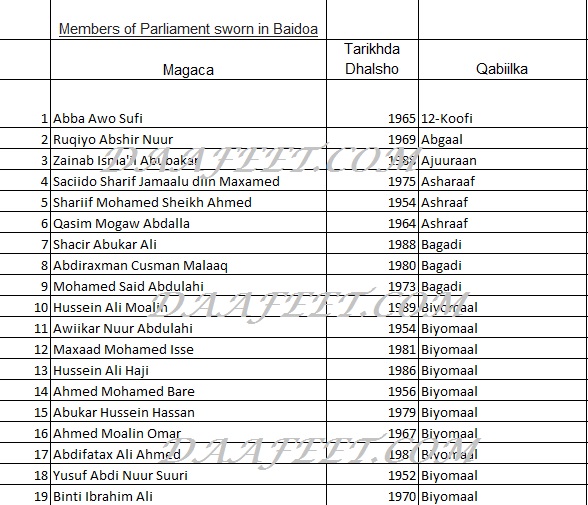 Members of Parliament sworn in Baidoa
Magaca Tarikhda Dhalsho Qabiilka
1 Abba Awo Sufi 1965 12-Koofi
2 Ruqiyo Abshir Nuur 1969 Abgaal
3 Zainab Isma'il Abubakar Ajuuraan
4 Saciido Sharif Jamaalu diin Maxamed 1975 Asharaaf
5 Shariif Mohamed Sheikh Ahmed 1954 Ashraaf
6 Qasim Mogaw Abdalla 1964 Ashraaf
7 Shacir Abukar Ali 1988 Bagadi
8 Abdiraxman Cusman Malaaq 1980 Bagadi
9 Mohamed Said Abdulahi 1973 Bagadi
10 Hussein Ali Moalin 1989 Biyomaal
11 Awiikar Nuur Abdulahi 1954 Biyomaal
12 Maxaad Mohamed Isse 1981 Biyomaal
13 Hussein Ali Haji 1986 Biyomaal
14 Ahmed Mohamed Bare 1956 Biyomaal
15 Abukar Hussein Hassan 1979 Biyomaal
16 Ahmed Moalin Omar 1967 Biyomaal
17 Abdifatax Ali Ahmed Biyomaal
18 Yusuf Abdi Nuur Suuri 1952 Biyomaal
19 Binti Ibrahim Ali 1970 Biyomaal
DAAFEET.COM
DAAFEET.COM
DAAFEET.COM